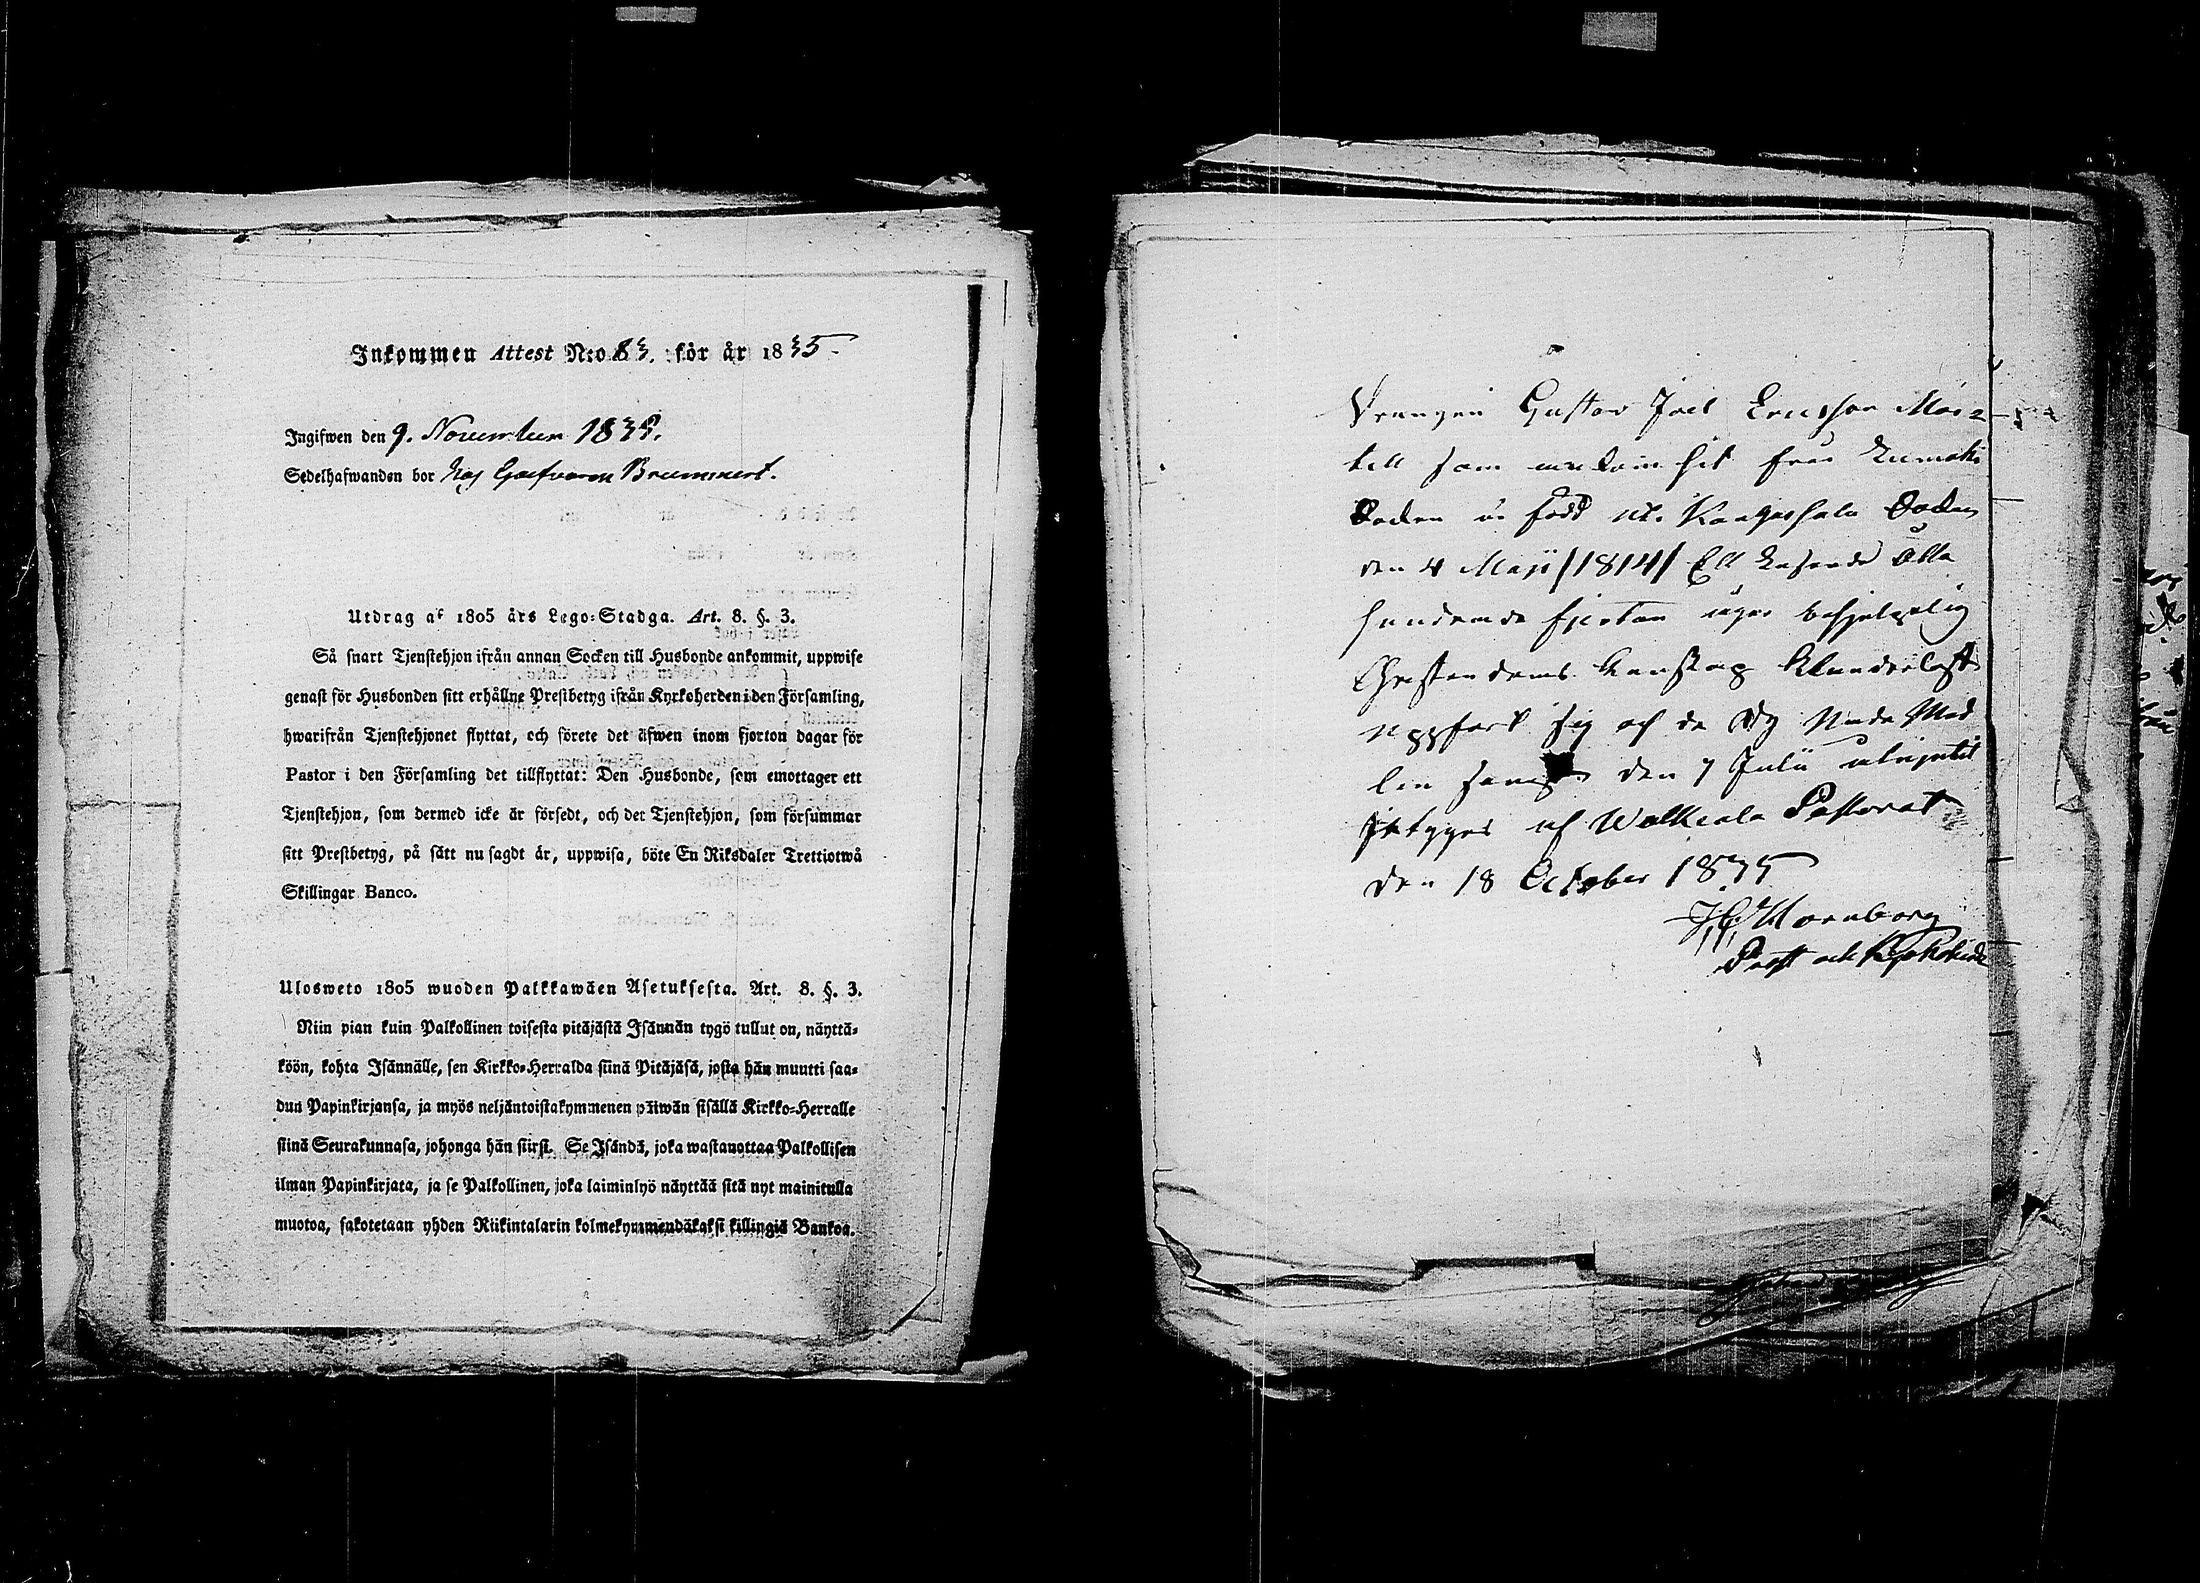 Inkommen Attest N:o 83. för år 1835.
Ingifwen den 9. November 1835.
Sedelhafwanden bor hos Garfvaren Brummert.
Utdrag af 1805 års Lego-Stadga. Art. 8. §. 3.
Så snart Tjenstehjon ifrån annan Socken till Husbonde ankommit, uppwise
genast för Husbonden sitt erhållne Prestbetyg ifrån Kyrkoherden i den Församling,
hwarifrån Tjenstehjonet flyttat, och förete det äfwen inom fjorton dagar för
Pastor i den Församling det tillflyttat: Den Husbonde, som emottager ett
Tjenstehjon, som dermed icke är försedt, och det Tjenstehjon, som försummar
sitt Prestbetyg, på sätt nu sagdt är, uppwisa, böte En Riksdaler Trettiotwå
Skillingar Banco.
Ulosweto 1805 wuoden Palkkawäen Asetuksesta. Art. 8. §. 3.
Niin pian kuin Palkollinen toisesta pitäjästä Isännän tygö tullut on, näyttä-
köön, kohta Isännälle, sen Kirkko-Herralda siinä Pitäjäsä, josta hän muutti saa-
dun Papinkirjansa, ja myös neljäntoistakymmenen päiwän sisällä Kirkko-Herralle
siinä Seurakunnasa, johonga hän siirsi. Se Isändä, joka wastanottaa Palkollisen
ilman Papinkirjata, ja se Palkollinen, joka laiminlyö näyttää sitä nyt mainitulla
muotoa, sakotetaan yhden Riikintalarin kolmekymmendäkaksi killingiä Bankoa.
Drengen Gustav Joel Ericsson
till som hit från
Socken är född uti Kangasala Socken
den 4 Maji /1814/ Ett tusende Åtta
hundrade fjorton äger
Christendoms kunskap klanderlöst
uppfört sig och
den 7 Julii
intygas af Walkeala Pastorat
den 18 October 1835
Hornborg
Prost och Kyrkoherde